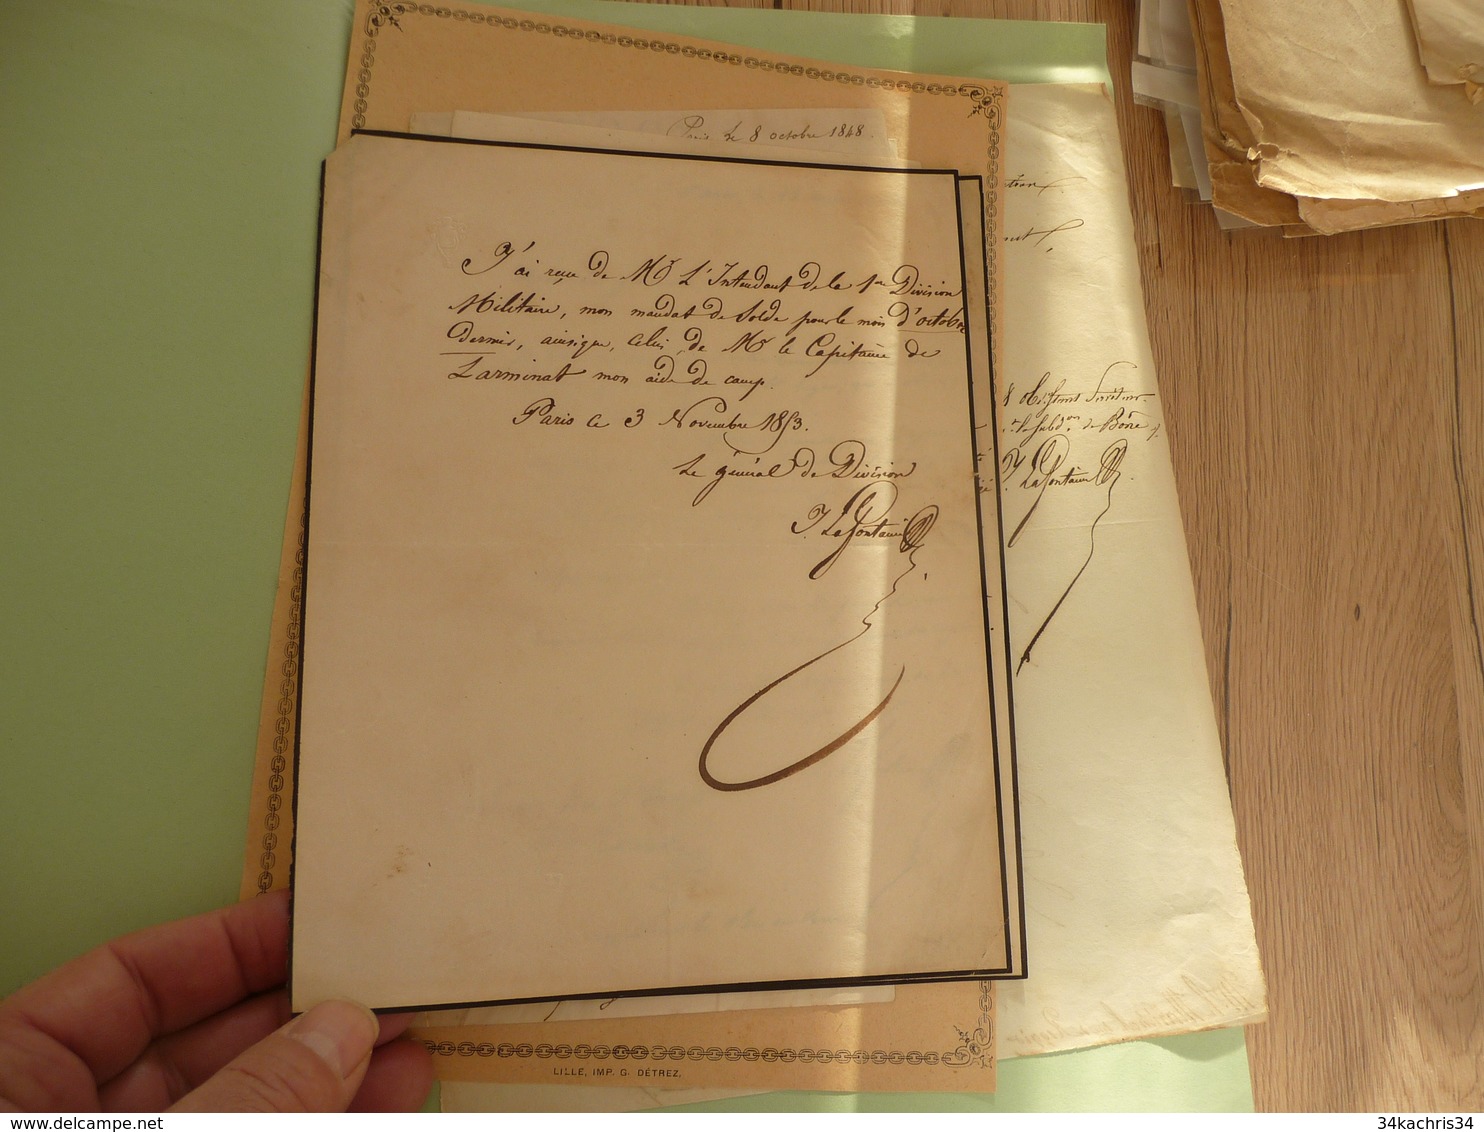 Paris le 8 octobre 1848.
J'ai reçu de Mr L'Intendant de la 1re Division
Militaire, mon mandat de solde pour le mois d'octobre
dernier, ainsique, celui de Mr le Capitaine de
Larminat mon aide de camp.
Paris le 3 Novembre 1853.
Le général de Division
J. LaFontaine
de Bône
J. LaFontaine
LILLE, IMP. G. DÉTREZ.
delcampe.net
34kachris34